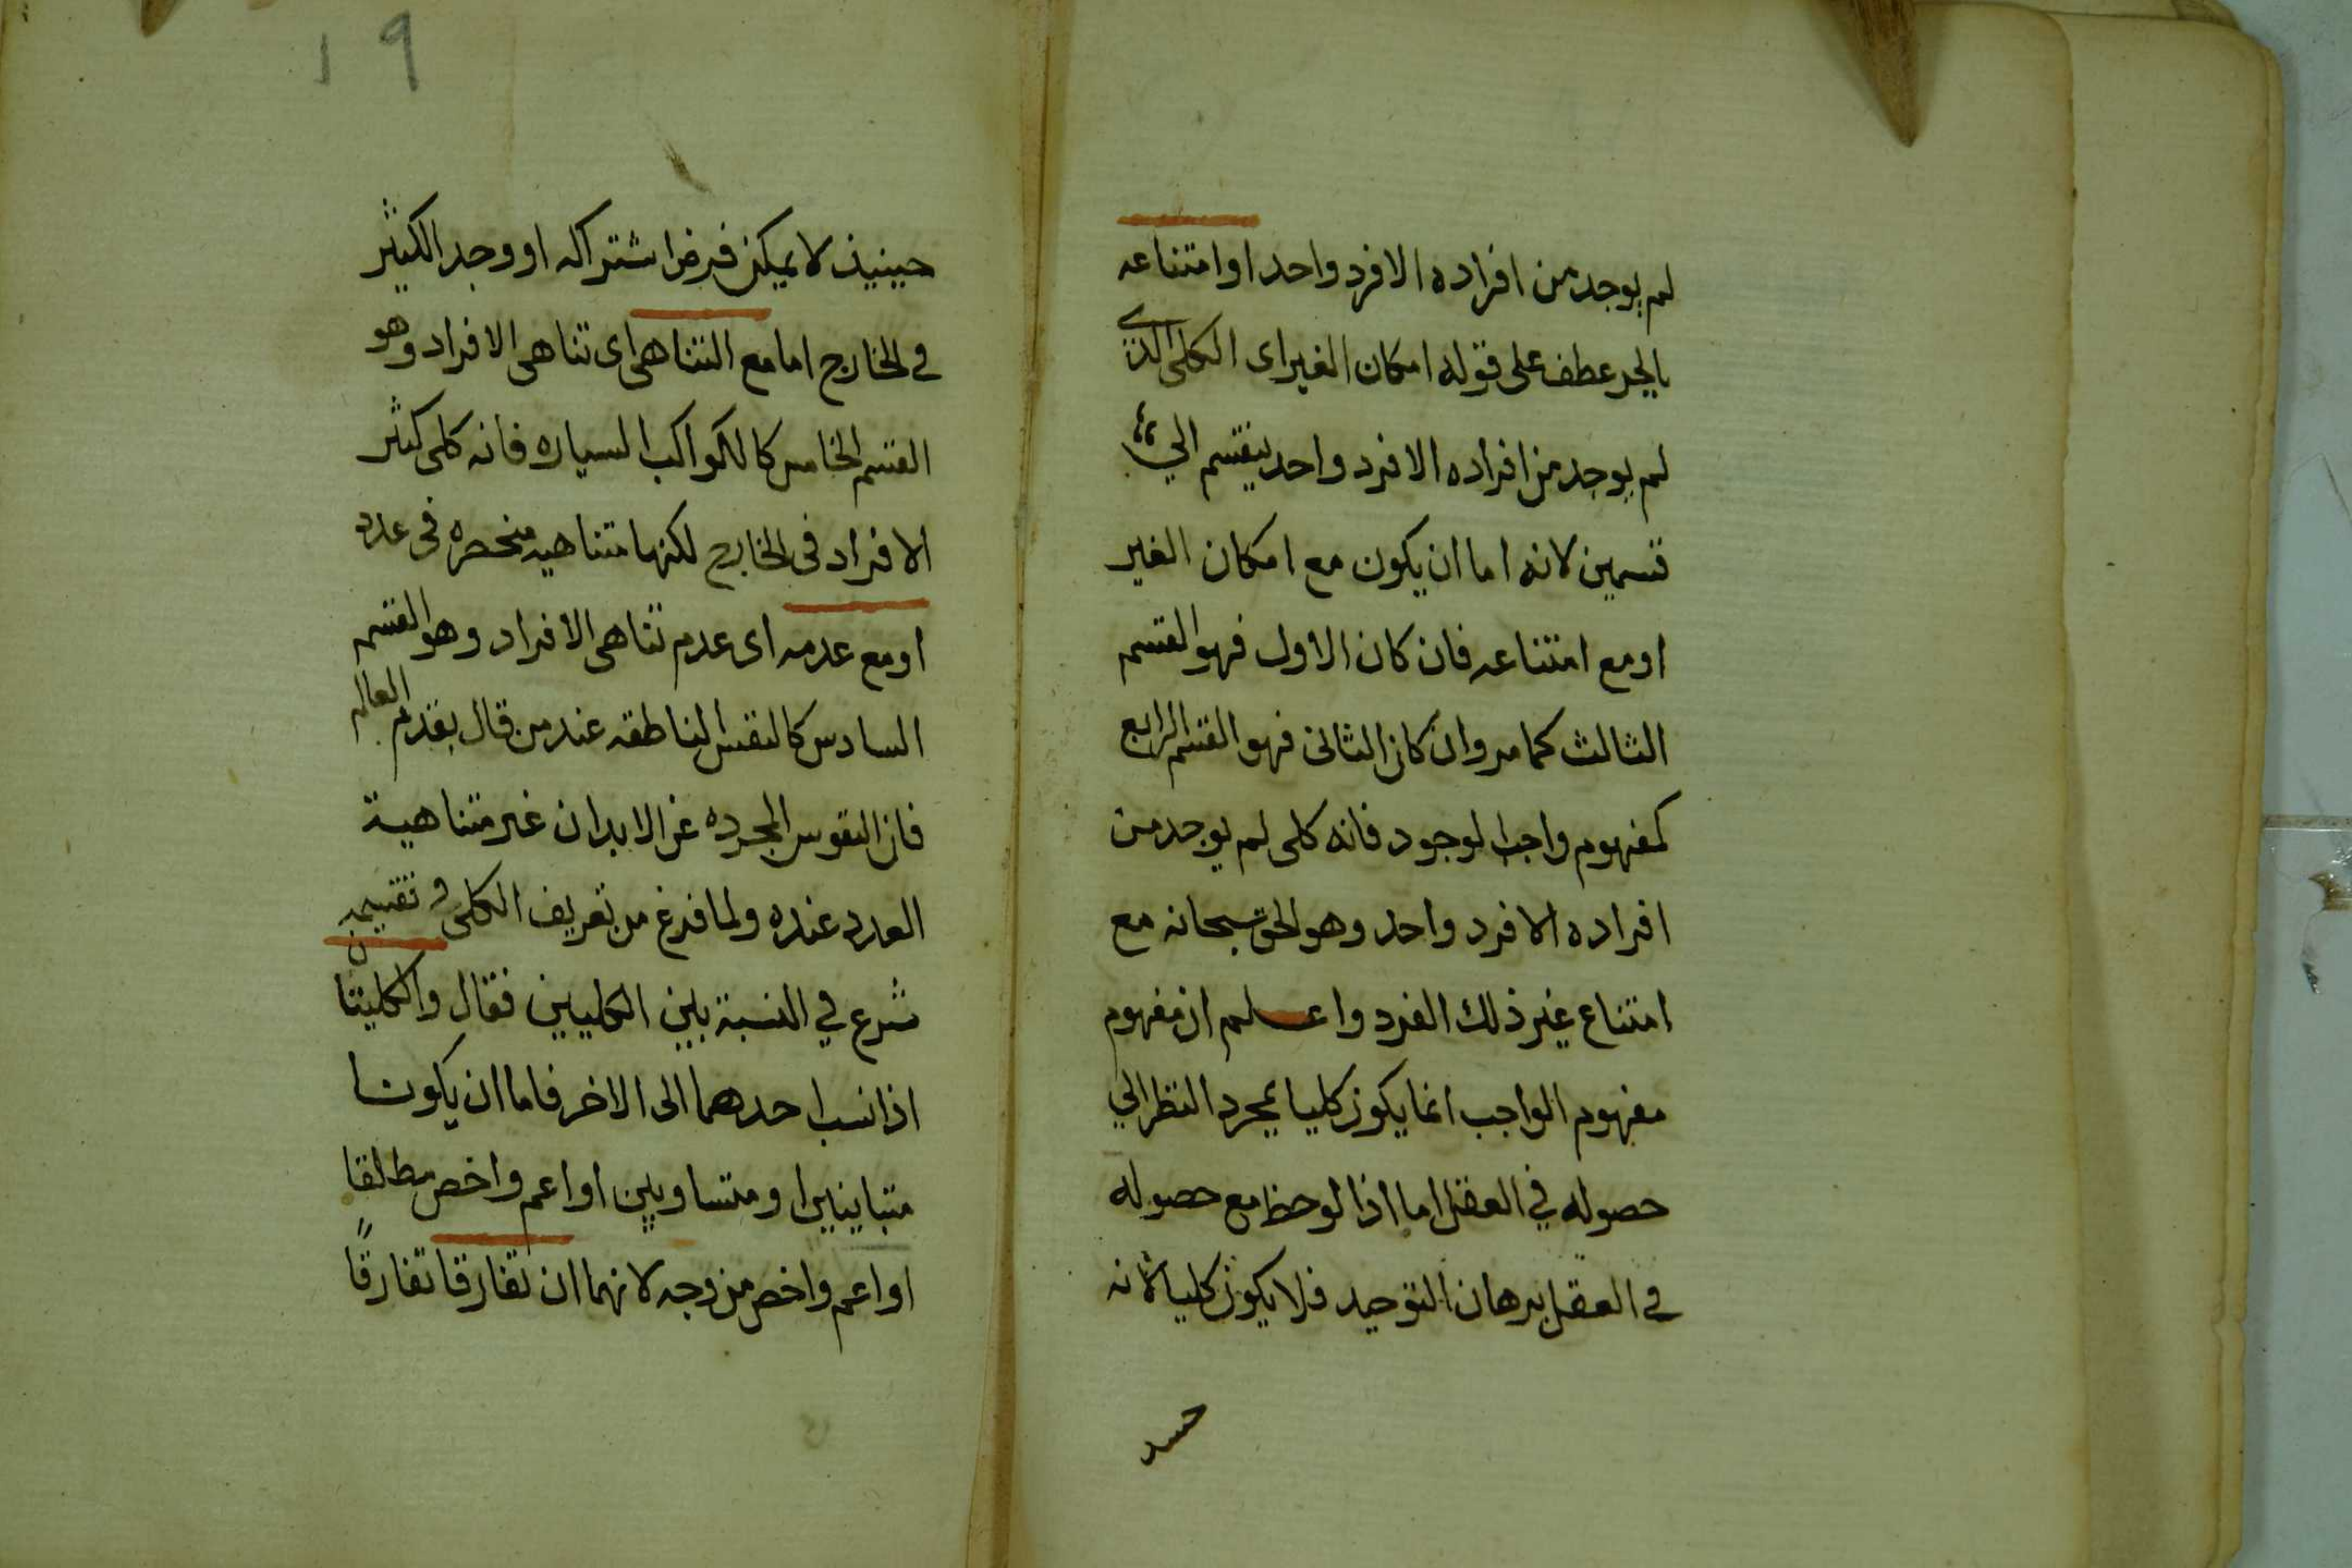 لم يوجد من افراده الا فرد واحد او امتناعه
بالجر عطف على قوله امكان الغير اى الكلى الذى
لم يوجد من افراده الا فرد واحد ينقسم الي
قسمين لانه اما ان يكون مع امكان الغير
او مع امتناعه فان كان الاول فهو القسم
الثالث كما مر وان كان الثانى فهو القسم الرابع
كمفهوم واجب الوجود فانه كلى لم يوجد من
افراده الا فرد واحد وهو الحق سبحانه مع
امتناع غير ذلك الفرد واعلم ان مفهوم
مفهوم الواجب انما يكون كليا بمجرد النظر الي
حصوله في العقل اما اذا لوحظ مع حصوله
في العقل برهان التوحيد فلا يكون كليا لانه
حينيذ
١٩
حينيذ لا يمكن فرض اشتراكه او وجد الكثير
في الخارج اما مع التناهى اى تناهى الافراد وهو
القسم الخامس كالكواكب السياره فانه كلى كثر
الافراد فى الخارج لكنها متناهيه منحصره فى عدد
او مع عدمه اى عدم تناهى الافراد وهو القسم
السادس كالنفس الناطقه عند من قال بقدم العالم
فان النفوس المجرده عن الابدان غير متناهية
العدد عنده ولما فرغ من تعريف الكلى و تقسيمه
شرع في النسبة بين الكليين فقال والكليتان
اذا نسب احدهما الى الاخر فاما ان يكونا
متباينين او متساويين او اعم واخص مطلقا
او اعم واخص من وجه لانهما ان تفارقا تفارقًا